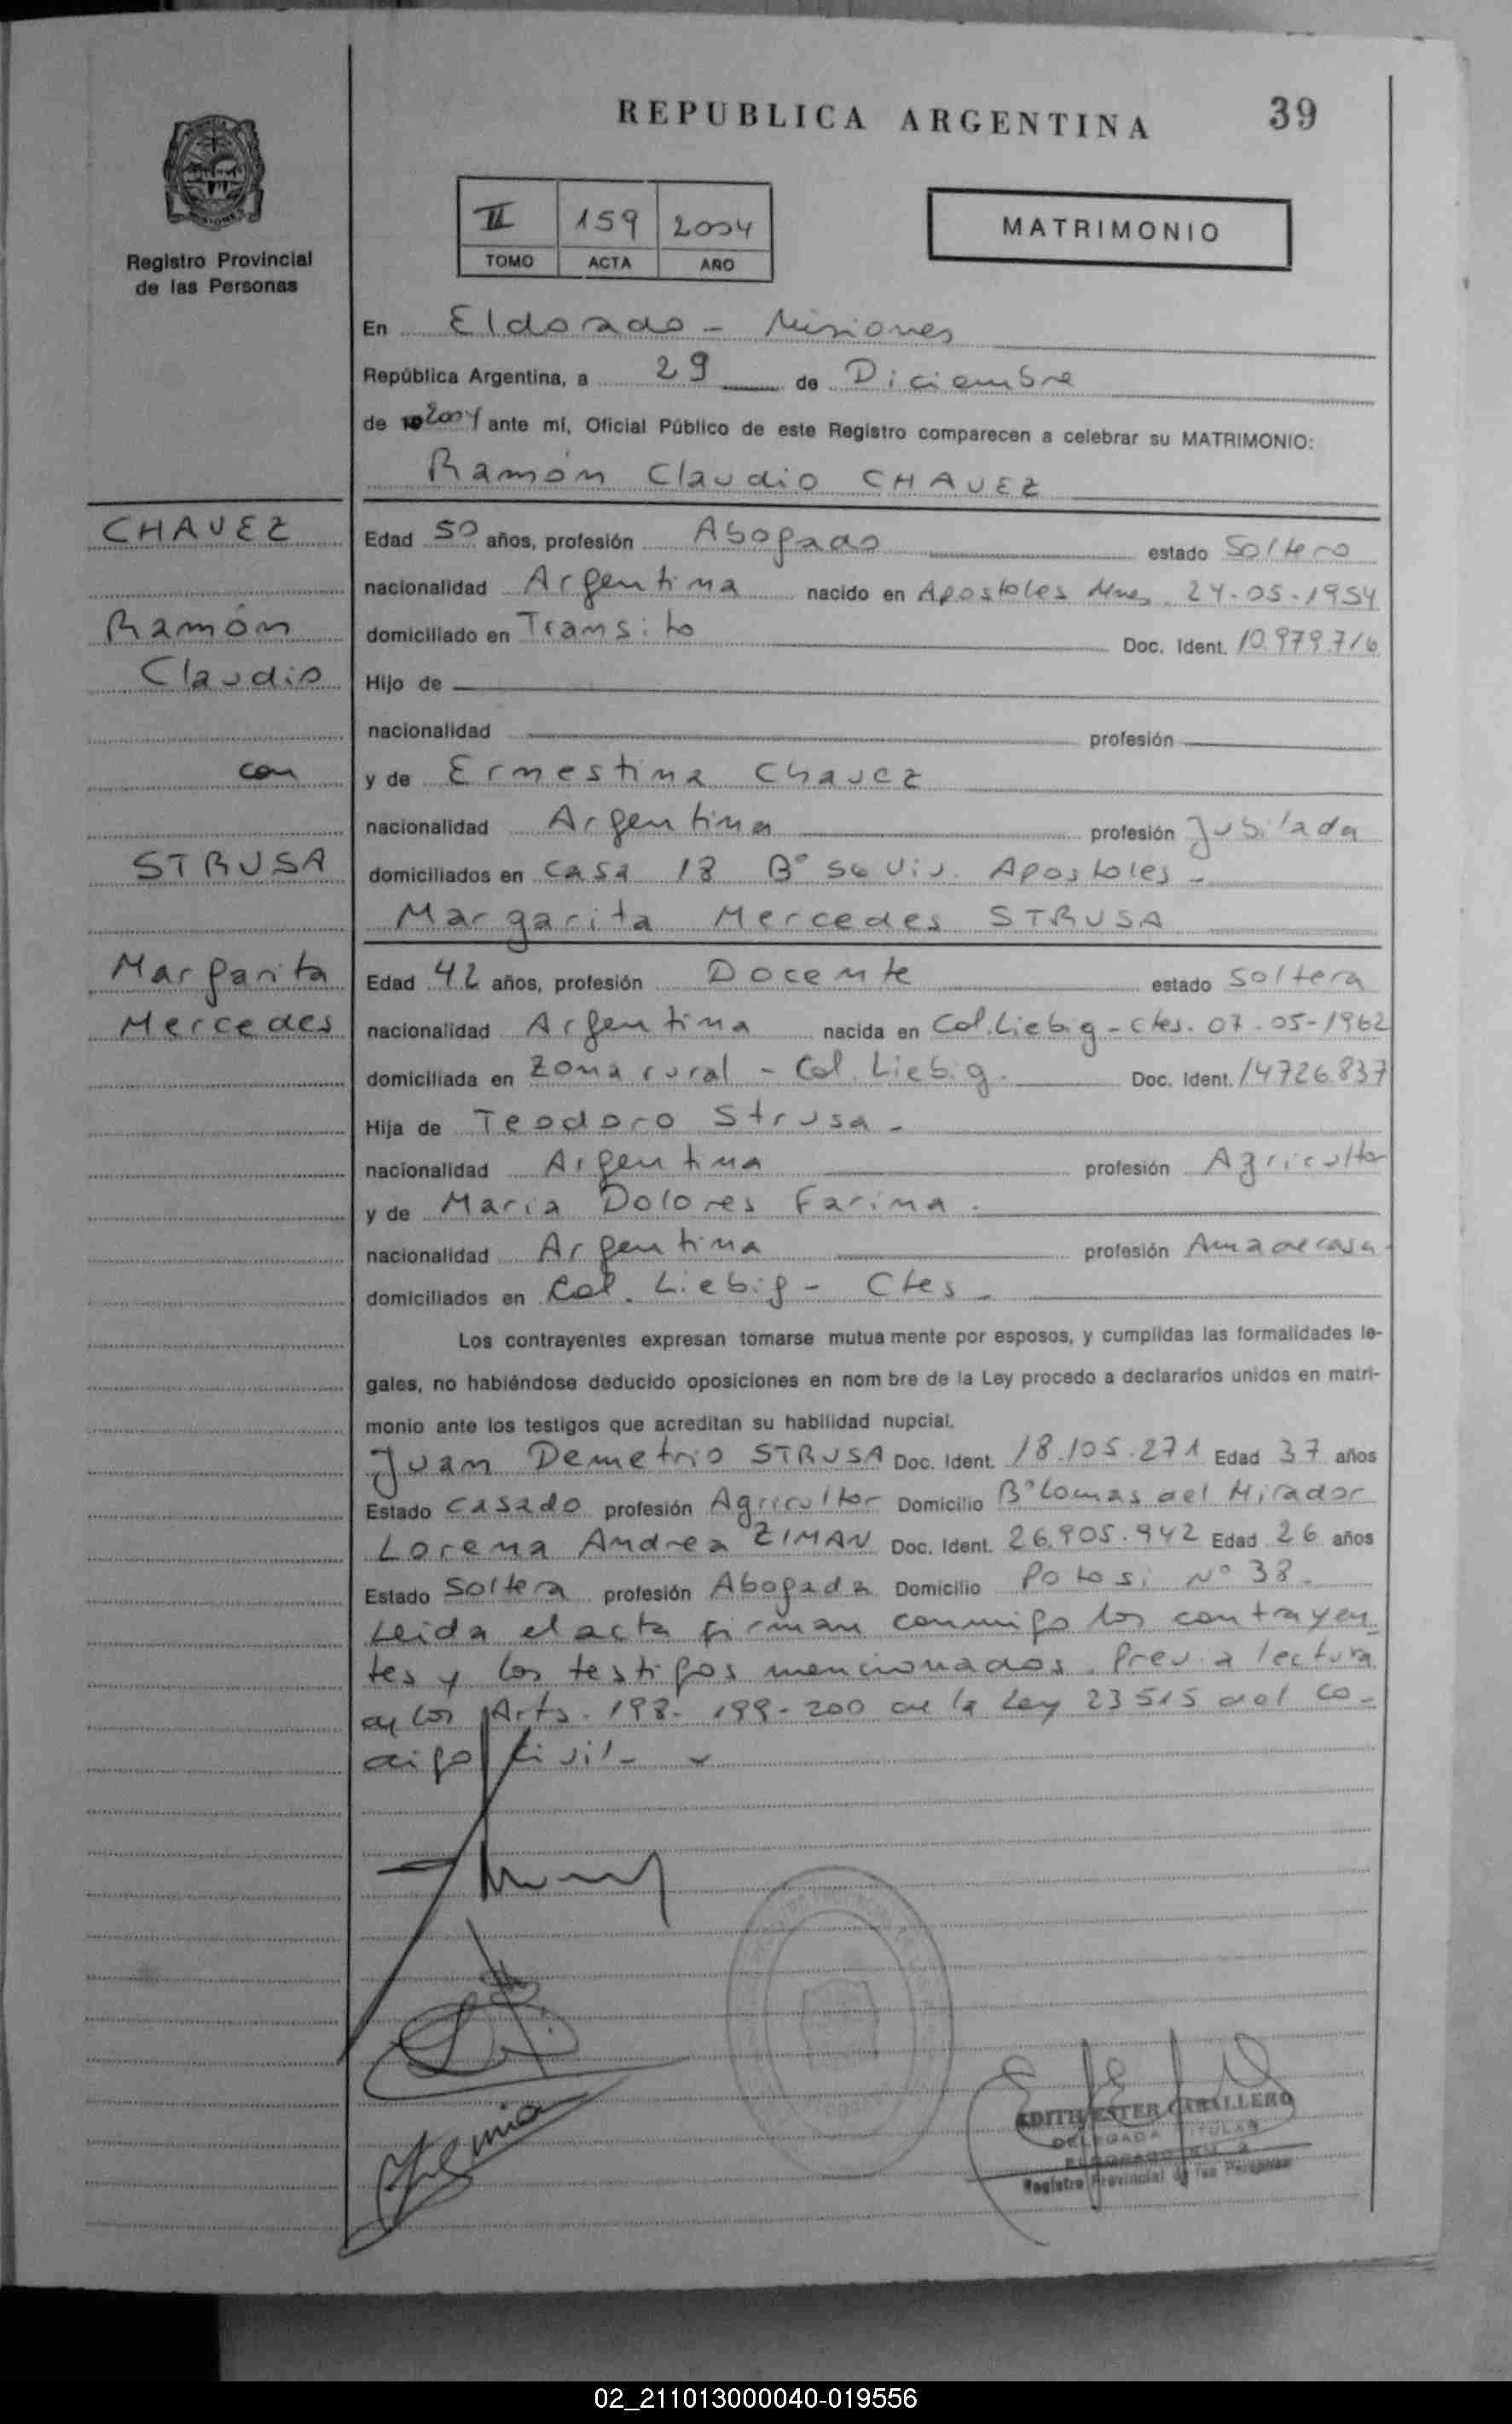 REPUBLICA ARGENTINA
39
Registro Provincial
de las Personas
II 159 2004
TOMO ACTA AÑO
MATRIMONIO
En Eldorado - Misiones
República Argentina, a 29 de Diciembre
de 2004 ante mí, Oficial Público de este Registro comparecen a celebrar su MATRIMONIO:
Ramón Claudio CHAVEZ
CHAVEZ
Ramón
Claudio
con
STRUSA
Margarita
Mercedes
Edad 50 años, profesión Abogado estado Soltero
nacionalidad Argentina nacido en Apostoles Mnes 24-05-1954
domiciliado en Transito Doc. Ident. 10.979.716
Hijo de
nacionalidad profesión
y de Ernestina Chavez
nacionalidad Argentina profesión Jubilada
domiciliados en Casa 18 B° 56 Viv. Apostoles -
Margarita Mercedes STRUSA
Edad 42 años, profesión Docente estado Soltera
nacionalidad Argentina nacida en Col. Liebig - Ctes. 07-05-1962
domiciliada en Zona rural - Col. Liebig. Doc. Ident. 14726.837
Hija de Teodoro Strusa -
nacionalidad Argentina profesión Agricultor
y de Maria Dolores Farina.
nacionalidad Argentina profesión Ama de casa
domiciliados en Col. Liebig - Ctes -
Los contrayentes expresan tomarse mutua mente por esposos, y cumplidas las formalidades le-
gales, no habiéndose deducido oposiciones en nom bre de la Ley procedo a declararlos unidos en matri-
monio ante los testigos que acreditan su habilidad nupcial.
Juan Demetrio STRUSA Doc. Ident. 18.105.271 Edad 37 años
Estado Casado profesión Agricultor Domicilio B° Lomas del Mirador
Lorena Andrea ZIMAN Doc. Ident. 26.905.942 Edad 26 años
Estado Soltera profesión Abogada Domicilio Potosi N° 38.
Leida el acta firman conmigo los contrayen
tes y los testigos mencionados. Previa lectura
de los Arts. 198- 199-200 de la Ley 23515 del Co-
digo Civil -
EDITH ESTER CABALLERO
DELEGADA TITULAR
Registro Provincial de las Personas
02_211013000040-019556